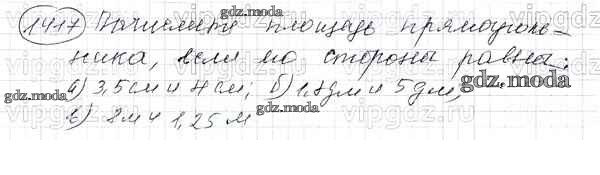 1417 Вычислить площадь прямоуголь-
ника, если его стороны равны:
а) 3,5 см и 4 см; б) 1,8 дм и 5 дм,
в) 8 м и 1,25 м
gdz.moda
gdz.moda
gdz.moda
gdz.moda